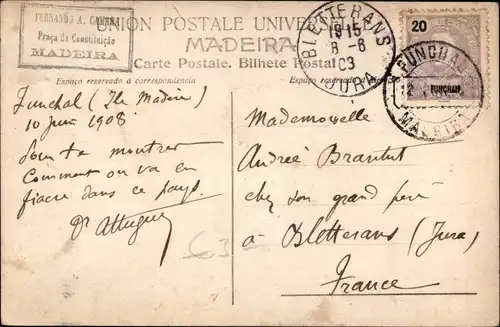 UNION POSTALE UNIVERSELLE
MADEIRA
Carte Postale. Bilhete Postal
Espaço reservado á correspondencia
Espaço reservado
FERNANDES A. CAMARA
Praça da Constituição
MADEIRA
BLETTERANS
1915
8 -6
03
JURA
20
FUNCHAL
FUNCHAL
12
MADEIRA
Funchal (Ile Madère)
10 Juin 1908
Pour te montrer
Comment on va en
fiacre dans ce pays.
Dr
Mademoiselle
Andrée Brantut
chez son grand père
à Bletterans (Jura)
France